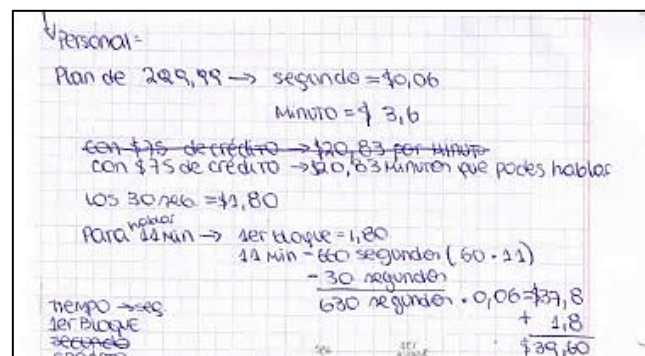 Personal=
Plan de 299,99 → segundo = $0,06
Minuto = $ 3,6
con $75 de crédito → $20,83 por minuto
con $75 de crédito → $20,83 minutos que podes hablar
Los 30 seg. = $1,80
Para hablar 11 min → 1er bloque = 1,80
11 min - 660 segundos (60 · 11)
- 30 segundos
630 segundos · 0,06 = $37,8
+ 1,8
$39,60
TIEMPO → seg.
1er BLOQUE
segundo
seg
1er